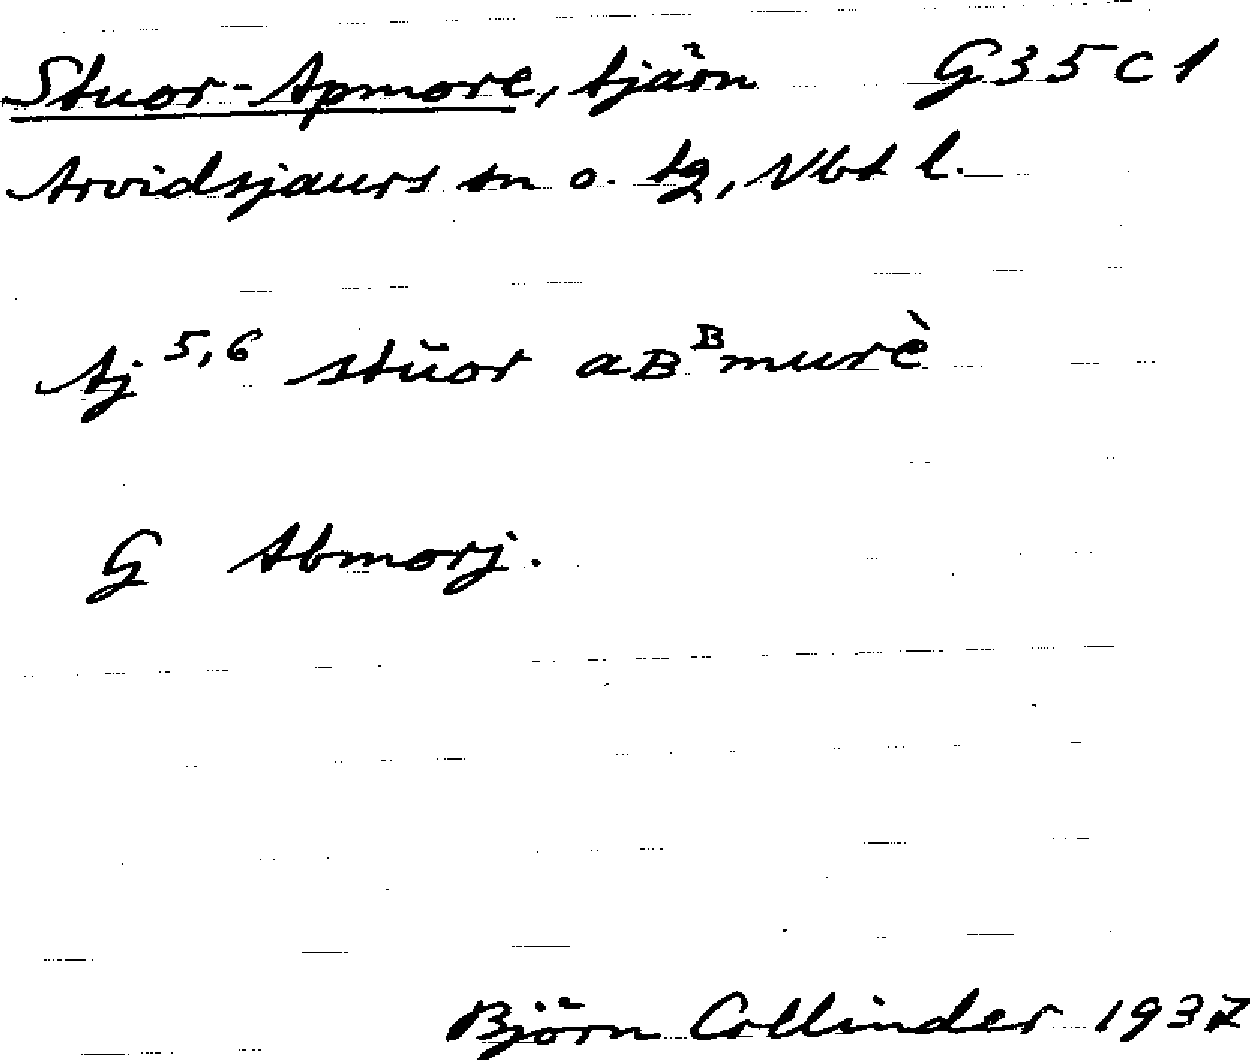 Stuor-Apmore, tjärn G35c1
Arvidsjaurs sn o. tg, Nbd l.
Aj 5,6 stūor aBᴮmurè
G Abmorj.
Björn Collinder 1937